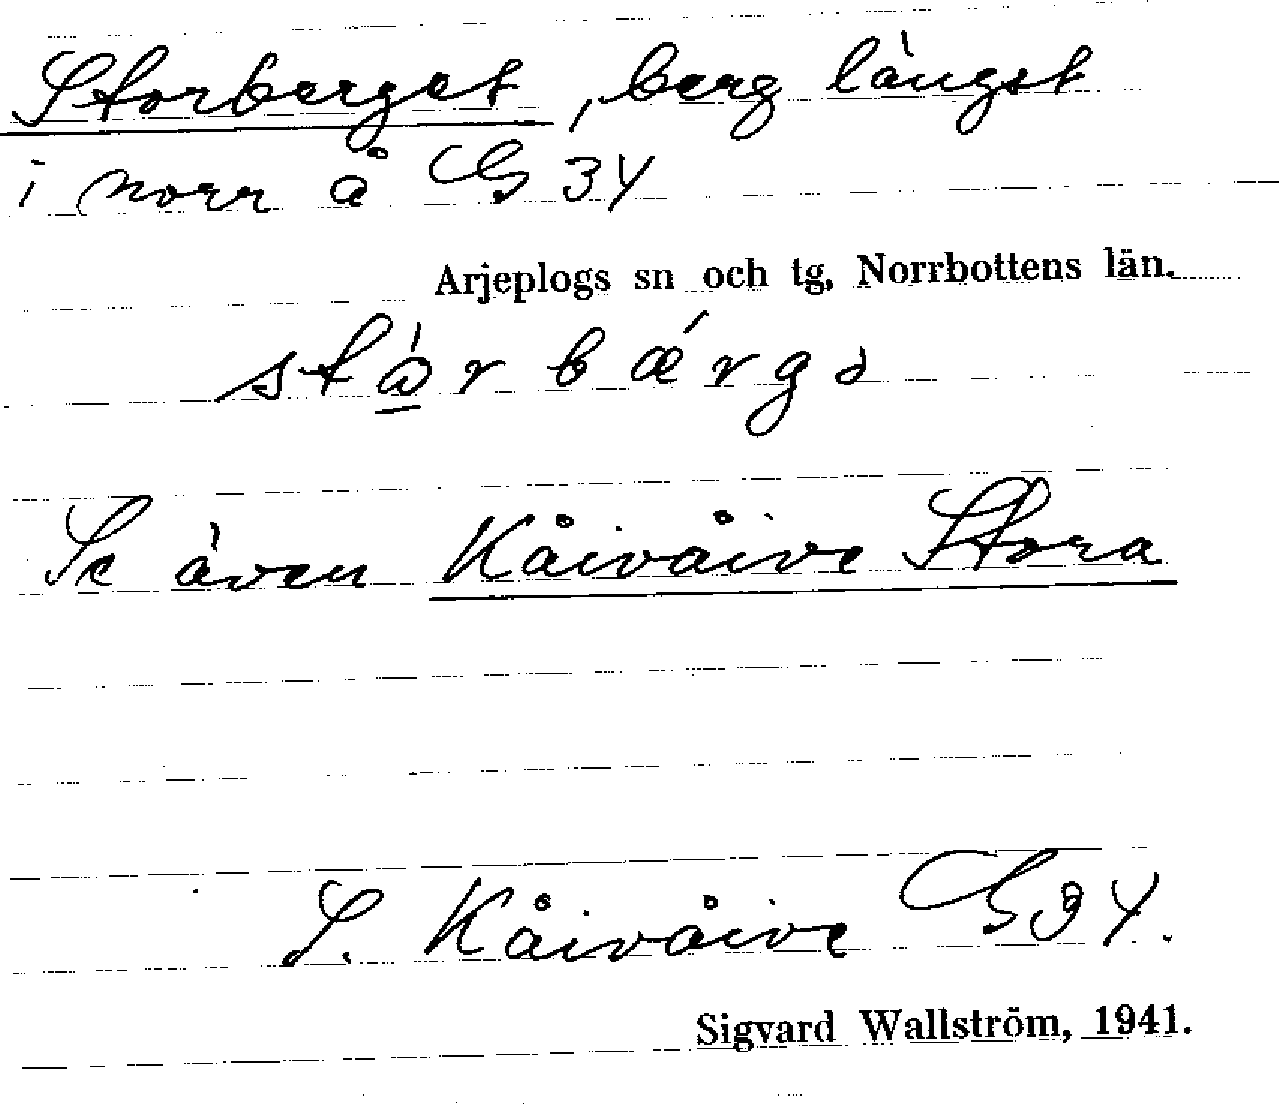 Storberget, berg längst
i norr å G 34
Arjeplogs sn och tg, Norrbottens län.
Se även Kåivåive Stora
S. Kåivåive G 34.
Sigvard Wallström, 1941.